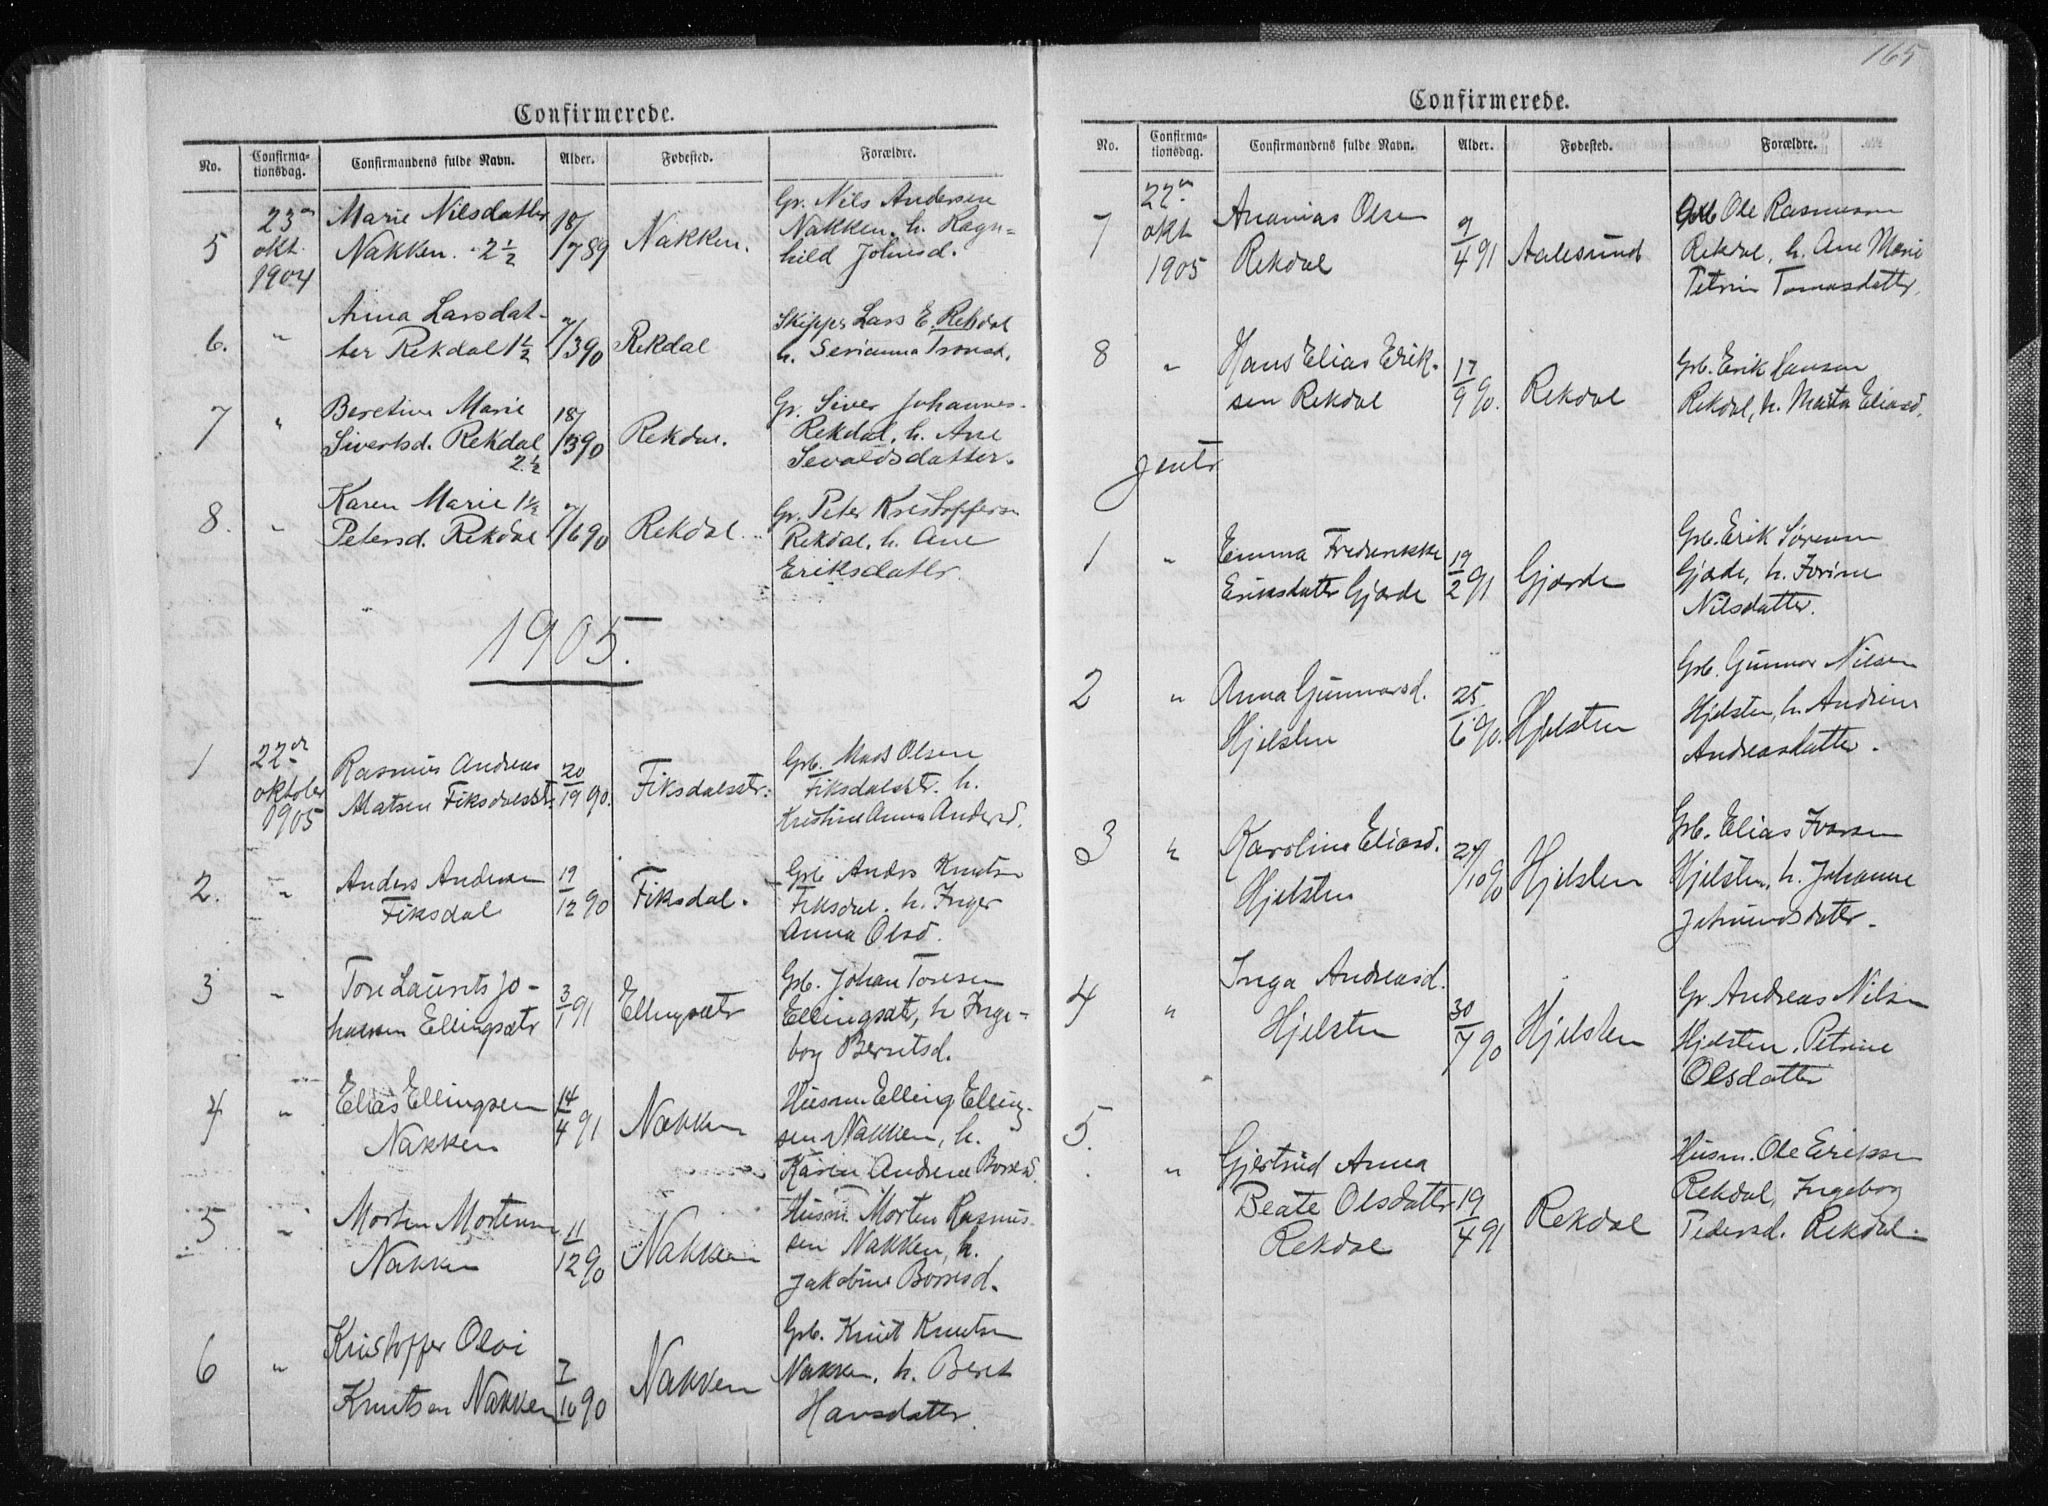 Confirmerede.
No. Confirma-tionsdag. Confirmandens fulde Navn. Alder. Fødested. Forældre.
5 23de okt. 1904 Marie Nilsdatter Nakken. 2 1/2 18/7 89 Nakken. Gr. Nils Andersen Nakken. h. Ragn=hild Johnsd.
6. " Anna Larsdat-ter Rekdal 1 1/2 7/3 90 Rekdal Skipper Lars E. Rekdal h. Serianna
7 " Beretine Marie Sivertsd. Rekdal 2 1/2 18/3 90 Rekdal. Gr. Siver Johannes. Rekdal. h. Ane Sevaldsdatter.
8. " Karen Marie 1 1/2 Petersd. Rekdal 7/6 90 Rekdal. Gr. Peter Kristoffersen Rekdal. h. Ane Eriksdatter.
1905.
1 22de oktober 1905 Rasmus Andreas Matsen Fiksdalsstr. 20/19 90. Fiksdalsstr. Grb. Mads Olsen Fiksdalsstr. h. Kristine Anna Andersd.
2. " Anders Andersen Fiksdal 19/12 90 Fiksdal. Grb Anders Knutsen Fiksdal. h. Inger Anna Olsd.
3 " Tore Laurits Jo-hansen Ellingsætr 3/1 91 Ellingsætr Grb. Johan Toresen Ellingsætr, h Inge-borg Berntsd.
4 " Elias Ellingsen Nakken 14/4 91 Nakken Husm. Elling Elling-sen Nakken, h. Karen Andrine Børresd.
5 " Morten Mortensen Nakken 11/12 90 Nakken Husm. Morten Rasmus-sen Nakken, h. Jakobine Børresd.
6 " Kristoffer Olai Knutsen Nakken 7/10 90 Nakken Grb. Knut Knutsen Nakken. h. Beret Hansdatter.
165
Confirmerede.
No. Confirma-tionsdag. Confirmandens fulde Navn. Alder. Fødested. Forældre.
7 22de okt 1905 Ananias Olsen Rekdal 9/4 91 Aalesund Grb Ole Rasmussen Rekdal, h. Ane Marie Petrine Tomasdatter.
8 " Hans Elias Erik-sen Rekdal 17/9 90. Rekdal Grb. Erik Hansen Rekdal, h. Marta Eliasd.
Jenter
1 " Emma Fredrikke Eriksdatter Gjærde 19/2 91 Gjærde Grb. Erik Sørensen Gjærde, h. Jorine Nilsdatter.
2 " Anna Gunnarsd. Hjelsten 25/6 90. Hjelsten Grb. Gunnar Nilsen Hjelsten, h. Andrine Andreasdatter.
3 " Karoline Eliasd. Hjelsten 24/10 90 Hjelsten Grb. Elias Ivarsen Hjelsten, h. Johanne Jetmundsdatter.
4 " Inga Andreasd. Hjelsten 30/7 90 Hjelsten Gr. Andreas Nilsen Hjelsten, Petrine Olsdatter
5. " Gjertrud Anna Beate Olsdatter Rekdal 19/4 91 Rekdal Husm. Ole Eriksen Rekdal, Ingeborg Pedersd. Rekdal.